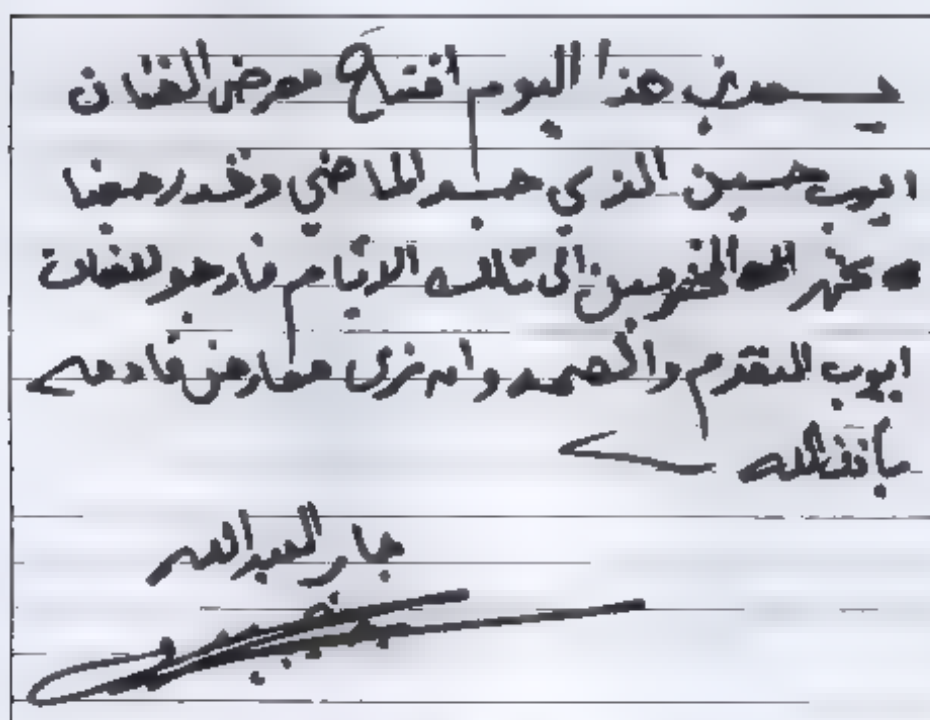 يسعدني هذا اليوم افتتاح معرض الفنان
ايوب حسين الذي جسد الماضي وقد رجعنا
الى تلك الايام فارجو للفنان
ايوب التقدم والصحه وان نرى معارض قادمه
بأذن الله
جابر العبدالله